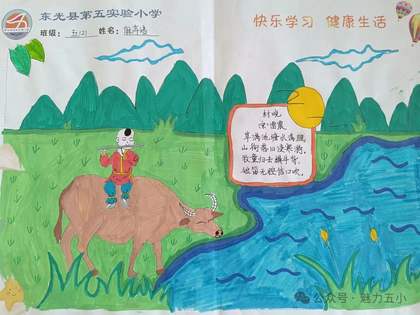 东光县第五实验小学
快乐学习 健康生活
班级: 五(2) 姓名:
村晚
宋·雷震
草满池塘水满陂,
山衔落日浸寒漪,
牧童归去横牛背,
短笛无腔信口吹。
公众号·魅力五小